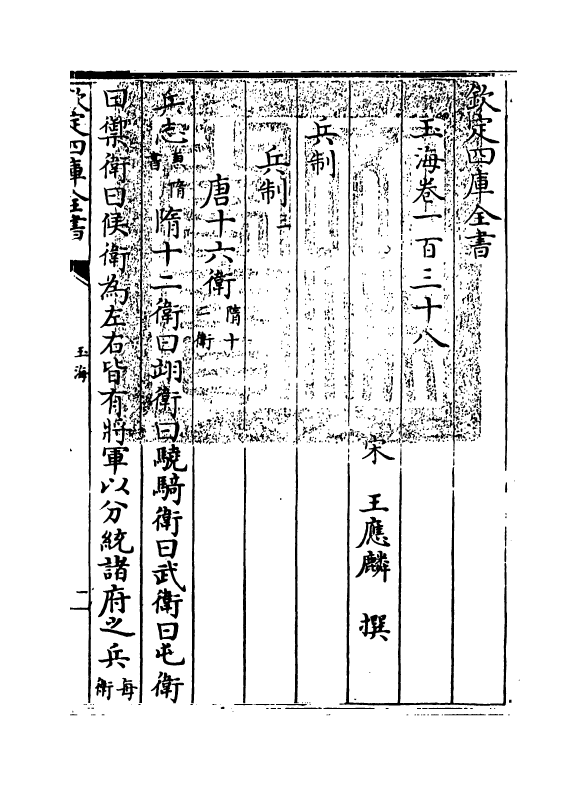 欽定四庫全書
玉海卷一百三十八
宋 王應麟 撰
兵制
兵制三
唐十六衛隋十二衛
兵志隋隋十二衛曰翊衛曰驍騎衛曰武衛曰屯衛
曰禦衛曰候衛為左右皆有將軍以分統諸府之兵每衛
欽定四庫全書
玉海